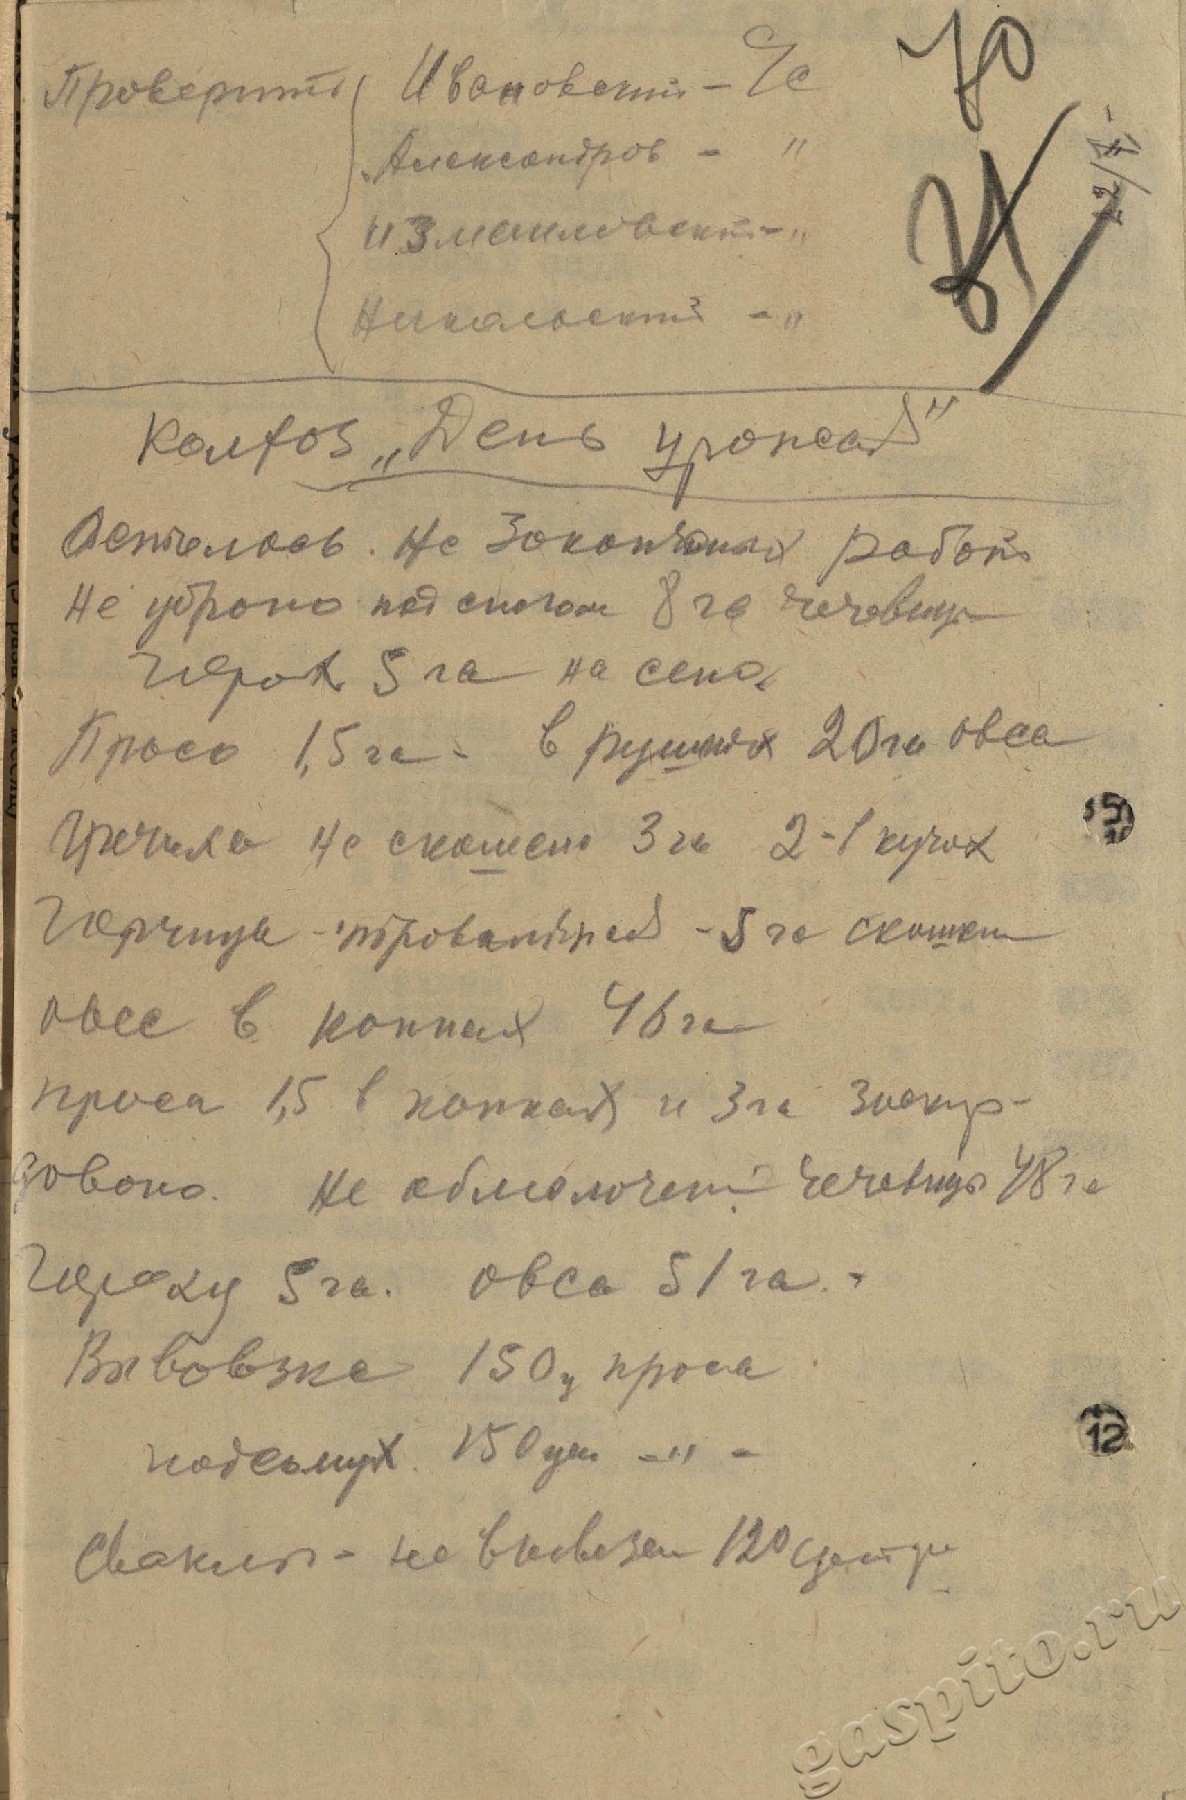 70
Проверить Ивановский - С/с
Александров - "
Измаиловский - "
Никольский - "
31
22/
Колхоз „День урожая"
Осталось не законченых работ
не убрано под снегом 8 га чечевицы
горох 5 га на сена
Просо 1,5 га - в 20 га овса
Гречиха не скошено 3 га 2-1 кучах
Горчица - - 5 га скошен
овес в копнах 46 га
проса 1,5 в копнах и 3 га заскир-
довано. не обмолочен чечевицы 48 га
Гороху 5 га. овса 51 га. -
Вывозке 150 ц проса
подсолнух 150 цен -"-
Свеклы - не вывезен 120 центр
12
gaspito.ru